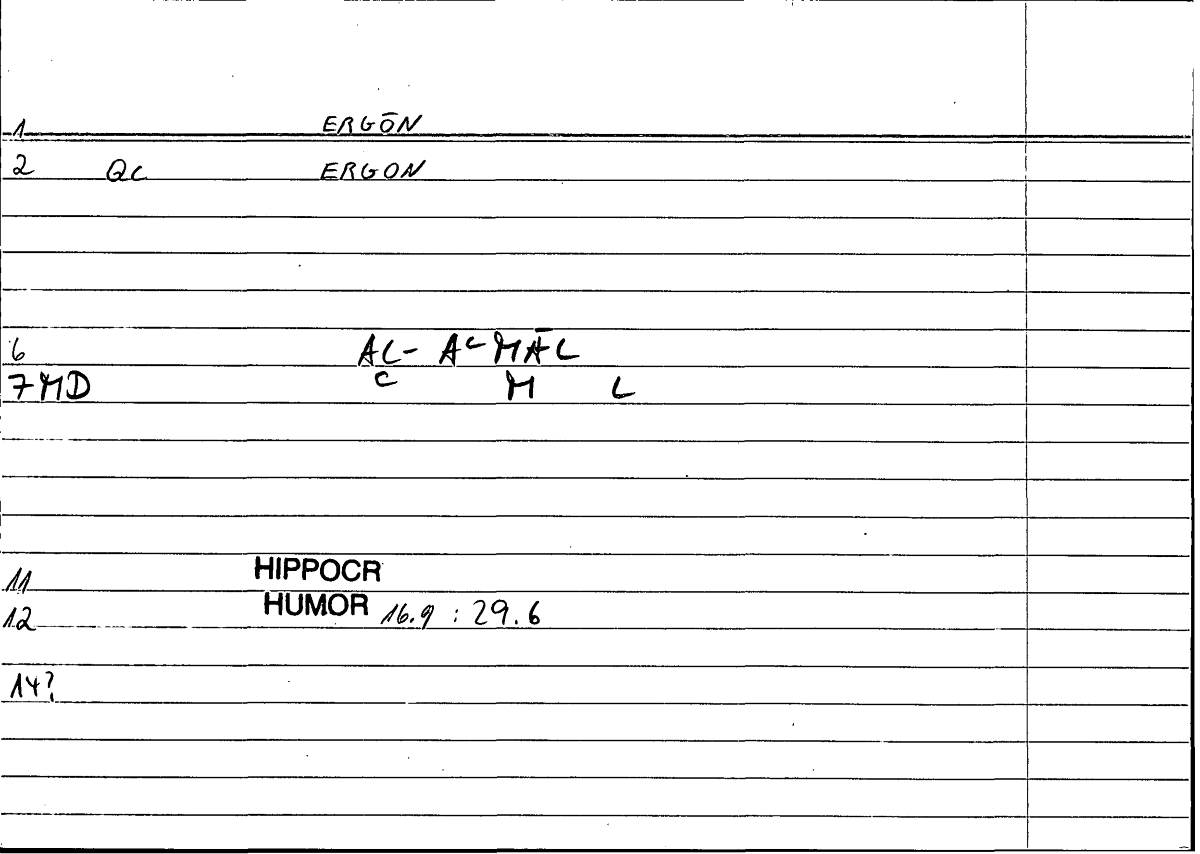 1 ERGŌN
2 Qc ERGON
6 AC- AC MĀL
7 MD C M L
11 HIPPOCR
12 HUMOR 16.9 : 29.6
14?